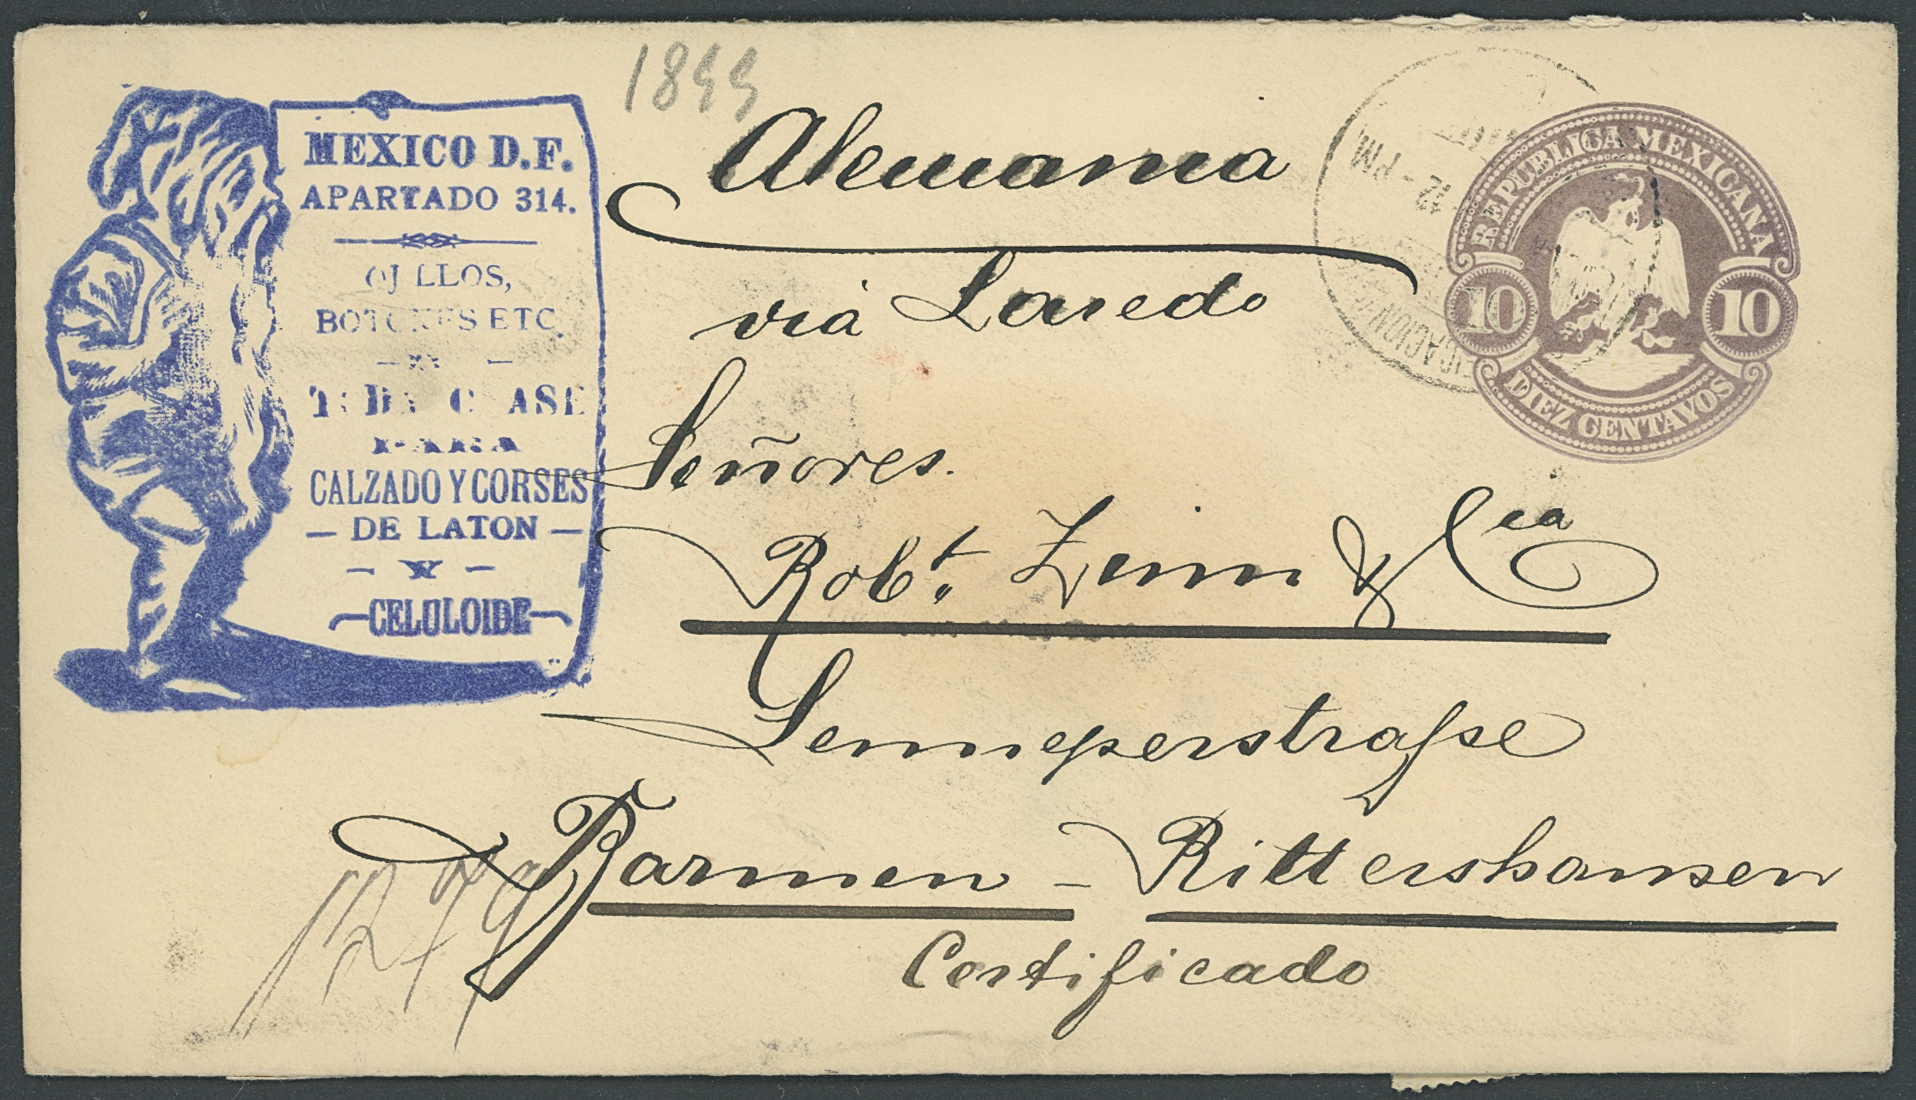 1899
MEXICO D.F.
APARTADO 314.
OJILLOS,
BOTONES ETC.
TODA CLASE
PARA
CALZADO Y CORSES
DE LATON
Y
CELULOIDE
Alemania
viá Laredo
Señores.
Robt. Zinn & Cia
Lenneperstraſse
Barmen - Rittershausen
Certificado
1279
12 - PM.
REPUBLICA MEXICANA
10 10
DIEZ CENTAVOS